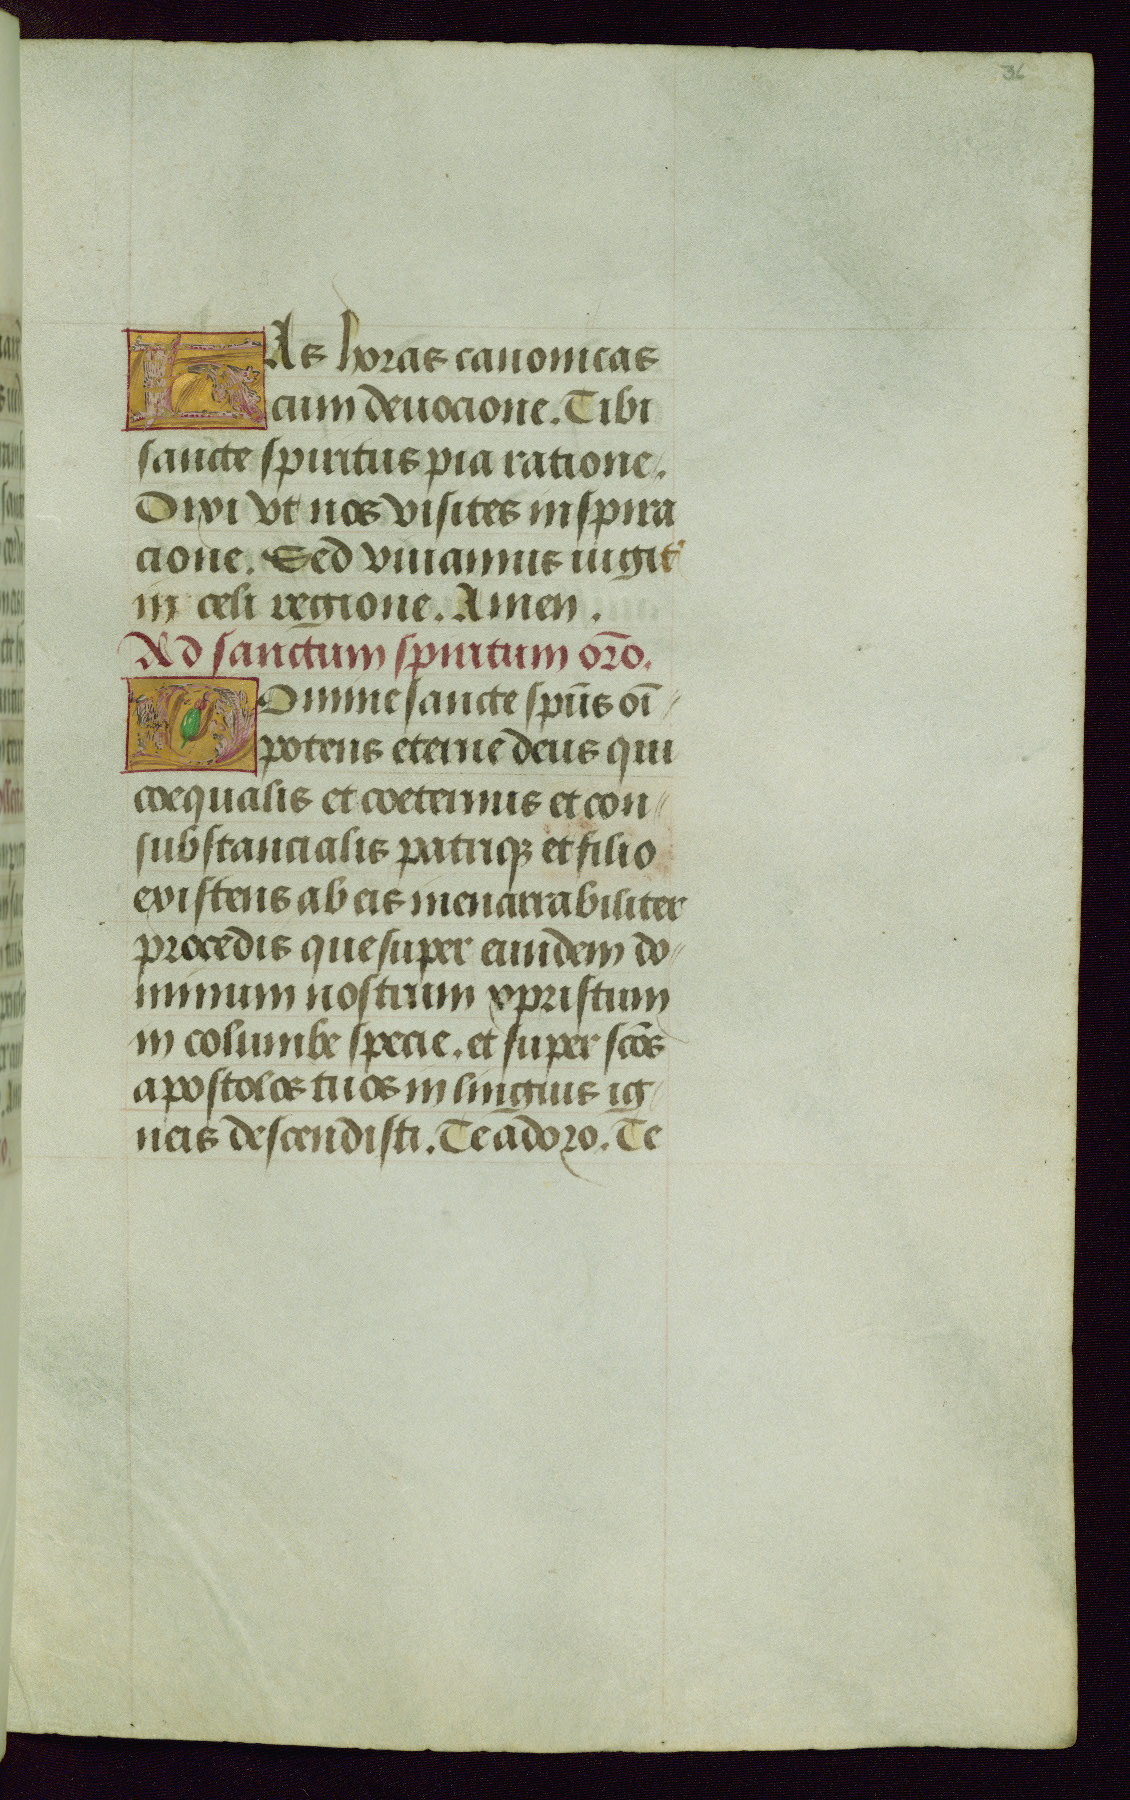 36
HAs horas canonicas
cum deuocione. Tibi
sancte spiritus pia ratione.
Dixi vt nos visites inspira
cione. Sed viuamus iugit᷑
in celi regione. Amen.
Ad sanctum spiritum or̄o.
DOmine sancte sp̄us oī
potens eterne deus qui
coequalis et coeternus et con
substancialis patriqꝫ et filio
existens ab eis inenarrabiliter
procedis que super eundem do
minum nostrum xpristum
in columbe specie. et super sc̄os
apostolos tuos in linguis ig
neis descendisti. Te adoro. Te